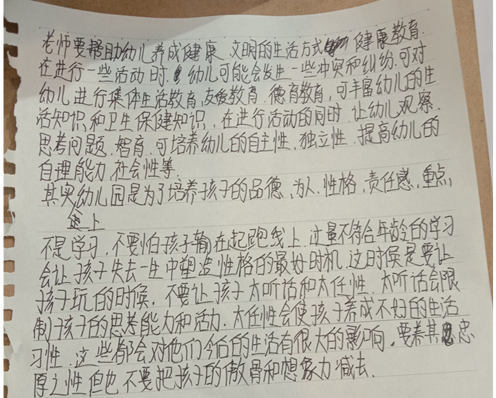 老师要帮助幼儿养成健康、文明的生活方式 健康教育
在进行一些活动时,幼儿可能会发生一些冲突和纠纷,可对
幼儿进行集体生活教育,友爱教育、德育教育,可丰富幼儿的生
活知识和卫生保健知识,在进行活动的同时,让幼儿观察、
思考问题,智育,可培养幼儿的自主性、独立性,提高幼儿的
自理能力,社会性等、
其实幼儿园是为了培养孩子的品德、为人、性格,责任感,重点,
不是学习,不要怕孩子输在起跑线上,过量不符合年龄的学习
会让孩子失去一生中塑造性格的最好时机,这时候是要让
孩子玩的时候,不要让孩子太听话和太任性,太听话会限
制孩子的思考能力和活力,太任性会使孩子养成不好的生活
习性,这些都会对他们今后的生活有很大的影响,要养其忠
厚之性但也不要把孩子的傲骨和想象力减去.